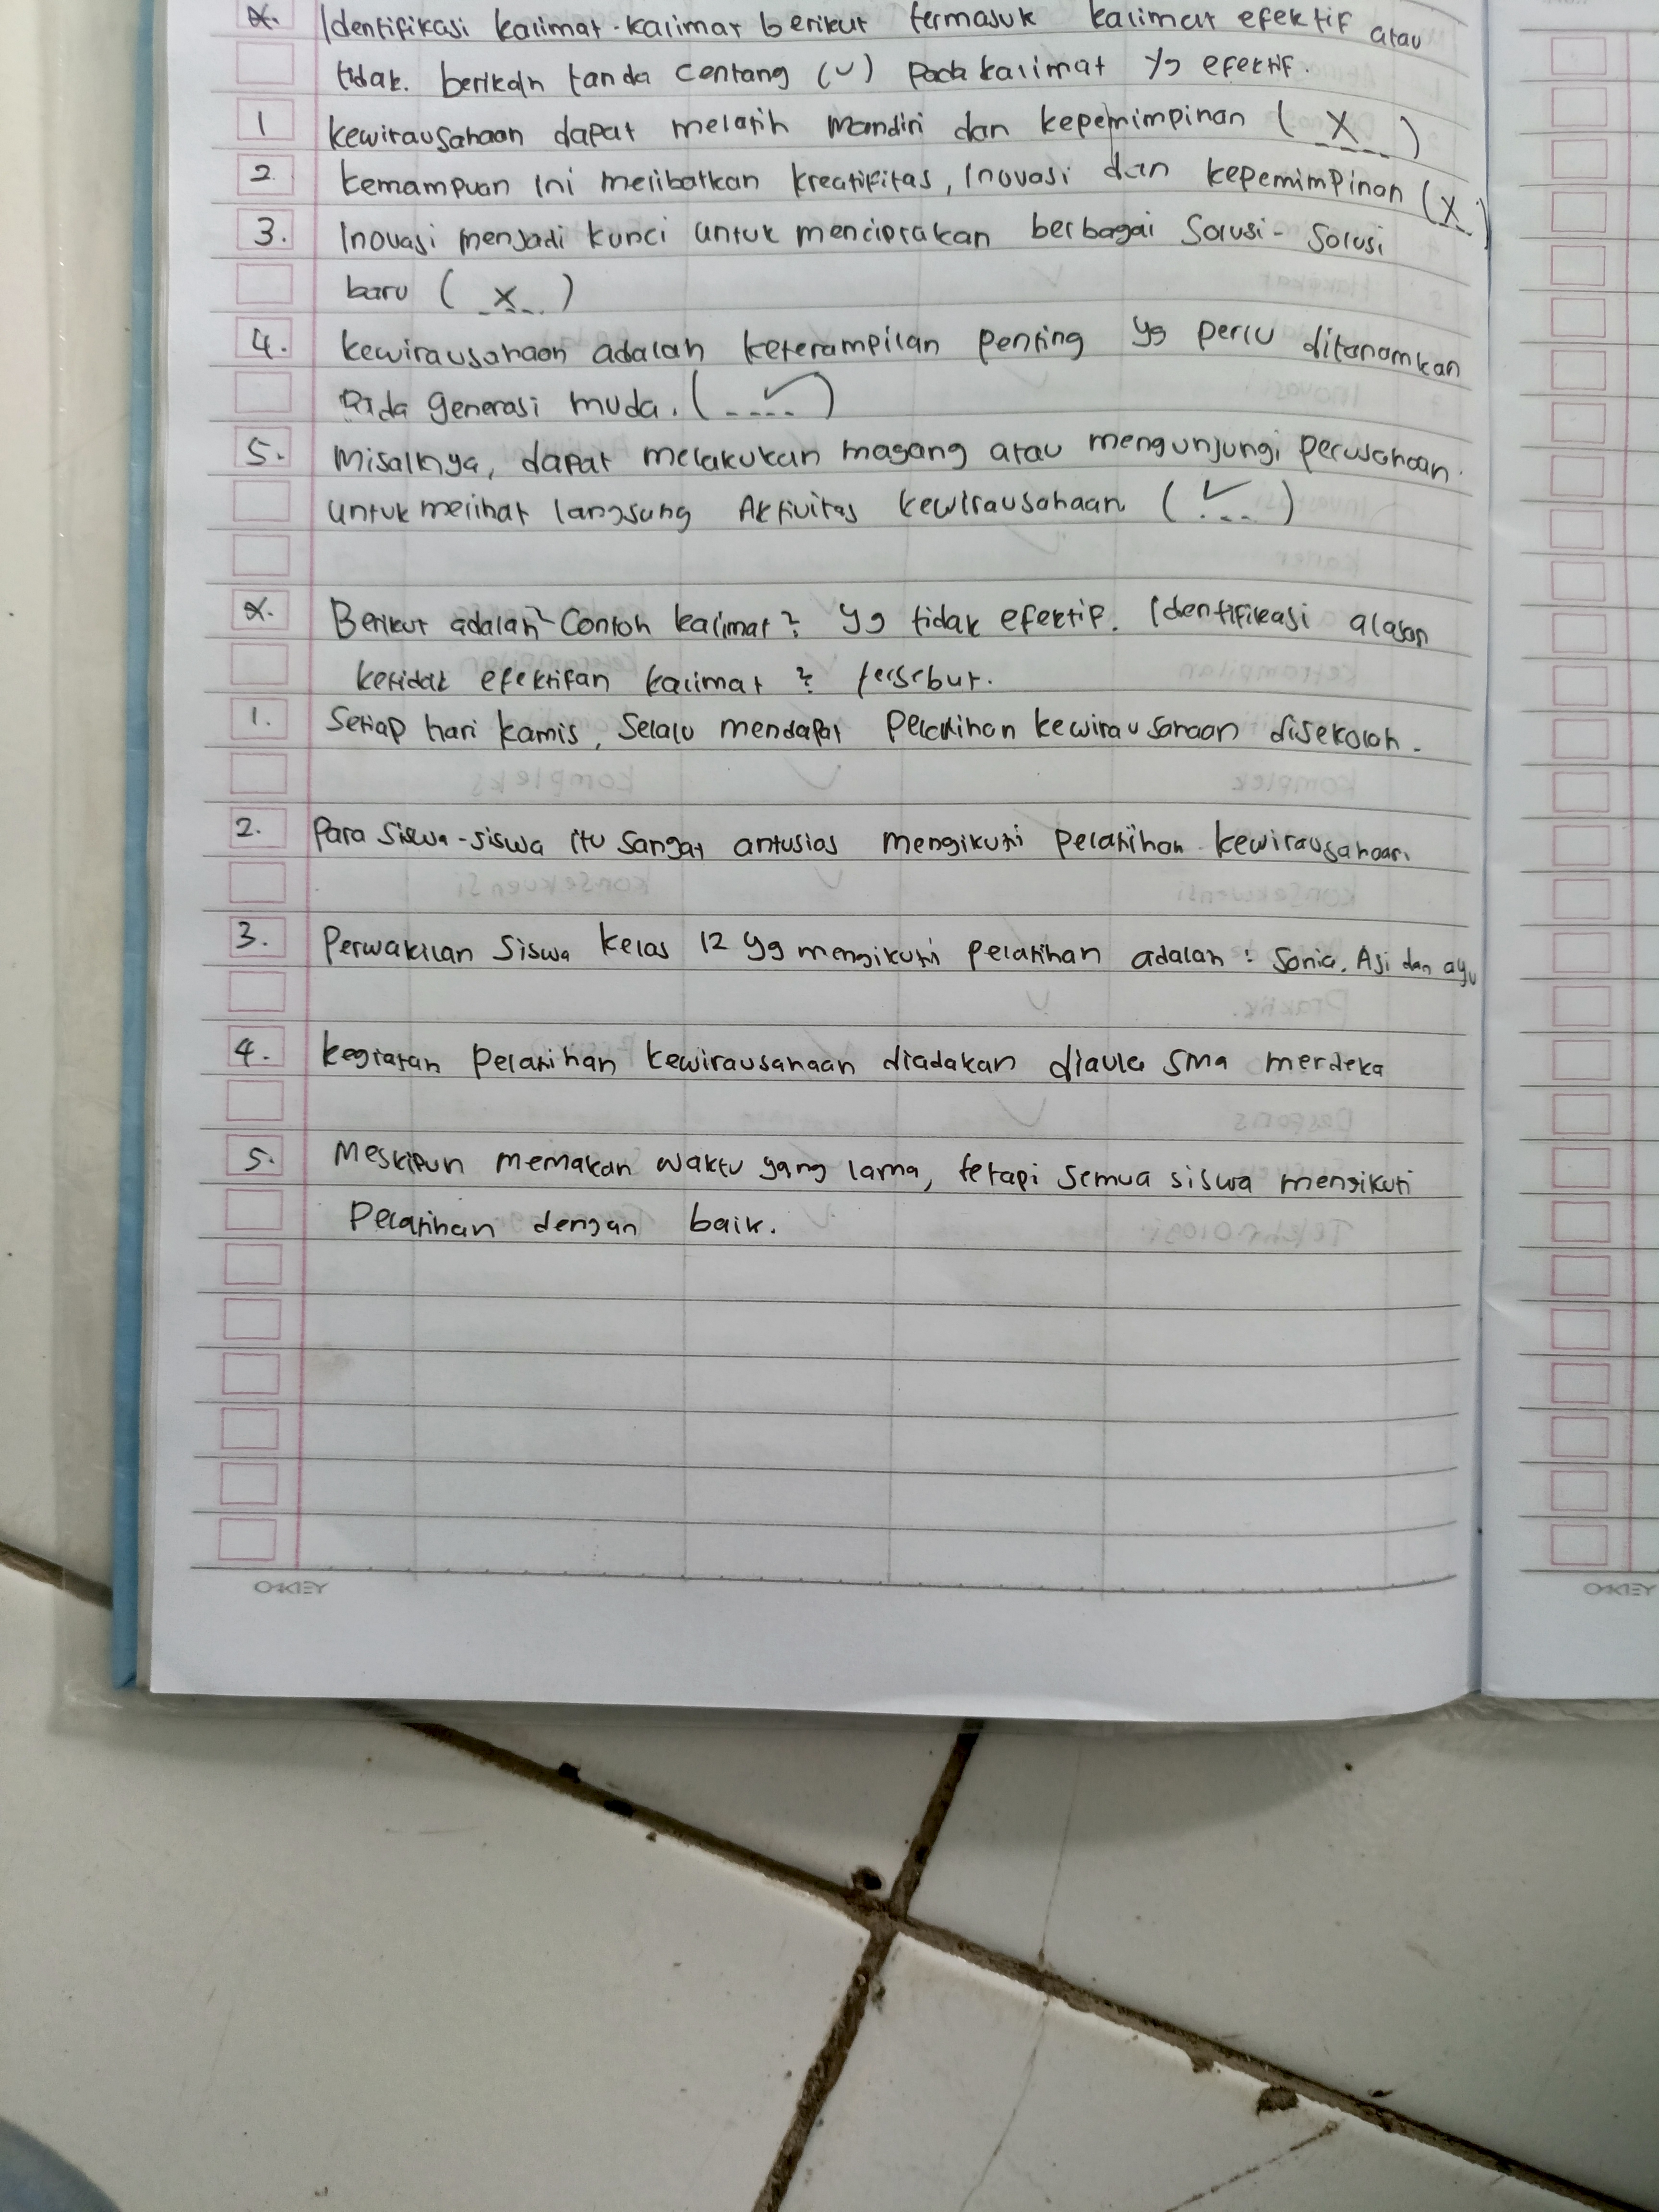 x. Identifikasi kalimat-kalimat berikut termasuk kalimat efektif atau
tidak. berikan tanda centang (✓) pada kalimat yg efektif.
1 kewirausahaan dapat melatih mandiri dan kepemimpinan ( X )
2. kemampuan ini melibatkan kreatifitas, Inovasi dan kepemimpinan (X)
3. Inovasi menjadi kunci untuk menciptakan berbagai Solusi-Solusi
baru ( X )
4. kewirausahaan adalah keterampilan penting yg perlu ditanamkan
pada generasi muda. ( ✓ )
5. Misalnya, dapat melakukan magang atau mengunjungi perusahaan
untuk melihat langsung Aktivitas kewirausahaan ( ✓ )
x. Berikut adalah Contoh kalimat2 yg tidak efektif. Identifikasi alasan
ketidak efektifan kalimat2 tersebut.
1. Setiap hari kamis, Selalu mendapat Pelatihan kewirausahaan disekolah.
2. Para Siswa-siswa itu Sangat antusias mengikuti pelatihan kewirausahaan.
3. Perwakilan Siswa kelas 12 yg mengikuti pelatihan adalah : Sonia, Aji dan ayu
4. kegiatan pelatihan kewirausahaan diadakan diaula sma merdeka
5. Meskipun memakan waktu yang lama, tetapi semua siswa mengikuti
Pelatihan dengan baik.
OKEY
OKEY